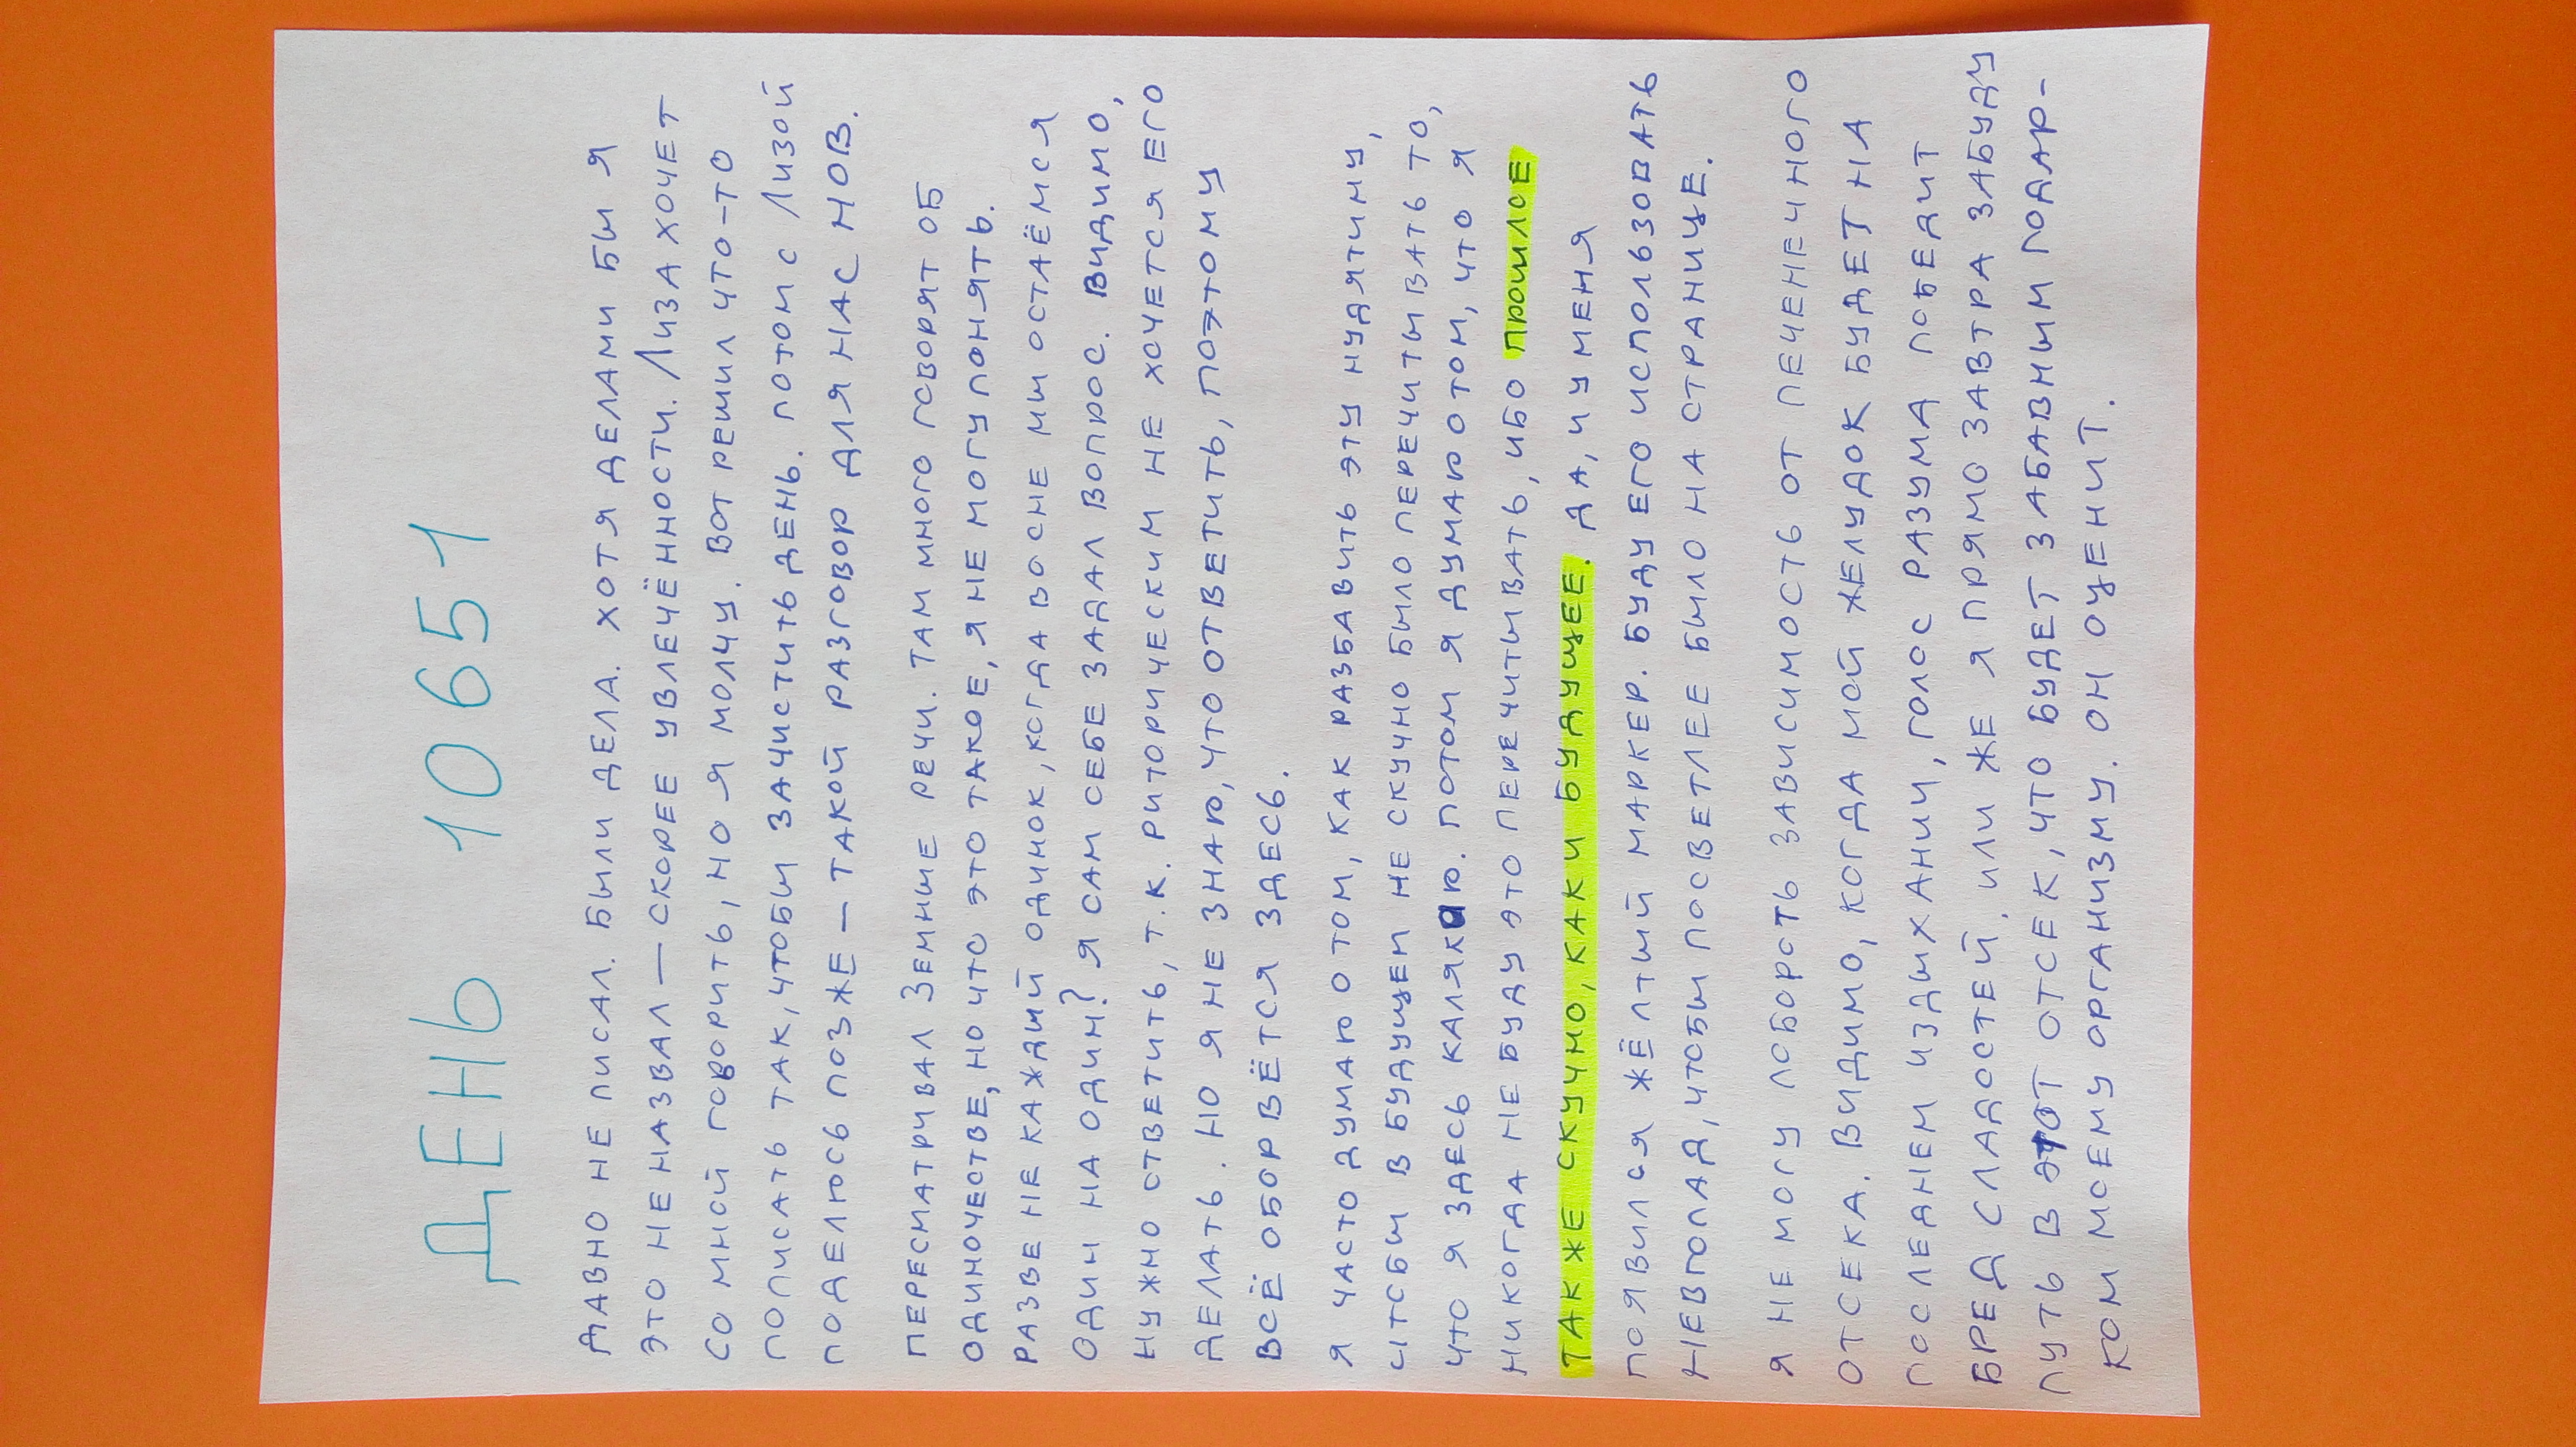 ДЕНЬ 10651
ДАВНО НЕ ПИСАЛ. БЫЛИ ДЕЛА. ХОТЯ ДЕЛАМИ БЫ Я
ЭТО НЕ НАЗВАЛ — СКОРЕЕ УВЛЕЧЁННОСТИ. ЛИЗА ХОЧЕТ
СО МНОЙ ГОВОРИТЬ, НО Я МОЛЧУ. ВОТ РЕШИЛ ЧТО-ТО
ПОПИСАТЬ ТАК, ЧТОБЫ ЗАЧИСТИТЬ ДЕНЬ. ПОТОМ С ЛИЗОЙ
ПОДЕЛЮСЬ ПОЗЖЕ — ТАКОЙ РАЗГОВОР ДЛЯ НАС НОВ.
ПЕРЕСМАТРИВАЛ ЗЕМНЫЕ РЕЧИ. ТАМ МНОГО ГОВОРЯТ ОБ
ОДИНОЧЕСТВЕ, НО ЧТО ЭТО ТАКОЕ, Я НЕ МОГУ ПОНЯТЬ.
РАЗВЕ НЕ КАЖДЫЙ ОДИНОК, КОГДА ВО СНЕ МЫ ОСТАЁМСЯ
ОДИН НА ОДИН? Я САМ СЕБЕ ЗАДАЛ ВОПРОС. ВИДИМО,
НУЖНО ОТВЕТИТЬ, Т.К. РИТОРИЧЕСКИМ НЕ ХОЧЕТСЯ ЕГО
ДЕЛАТЬ. НО Я НЕ ЗНАЮ, ЧТО ОТВЕТИТЬ, ПОЭТОМУ
ВСЁ ОБОРВЁТСЯ ЗДЕСЬ.
Я ЧАСТО ДУМАЮ О ТОМ, КАК РАЗБАВИТЬ ЭТУ НУДЯТИНУ,
ЧТОБЫ В БУДУЩЕМ НЕ СКУЧНО БЫЛО ПЕРЕЧИТЫВАТЬ ТО,
ЧТО Я ЗДЕСЬ КАЛЯКАЮ. ПОТОМ Я ДУМАЮ О ТОМ, ЧТО Я
НИКОГДА НЕ БУДУ ЭТО ПЕРЕЧИТЫВАТЬ, ИБО ПРОШЛОЕ
ТАК ЖЕ СКУЧНО, КАК И БУДУЩЕЕ. ДА, И У МЕНЯ
ПОЯВИЛСЯ ЖЁЛТЫЙ МАРКЕР. БУДУ ЕГО ИСПОЛЬЗОВАТЬ
НЕВПОПАД, ЧТОБЫ ПОСВЕТЛЕЕ БЫЛО НА СТРАНИЦЕ.
Я НЕ МОГУ ПОБОРОТЬ ЗАВИСИМОСТЬ ОТ ПЕЧЕНЕЧНОГО
ОТСЕКА. ВИДИМО, КОГДА МОЙ ЖЕЛУДОК БУДЕТ НА
ПОСЛЕДНЕМ ИЗДЫХАНИИ, ГОЛОС РАЗУМА ПОБЕДИТ
БРЕД СЛАДОСТЕЙ, ИЛИ ЖЕ Я ПРЯМО ЗАВТРА ЗАБУДУ
ПУТЬ В ЭТОТ ОТСЕК, ЧТО БУДЕТ ЗАБАВНЫМ ПОДАР-
КОМ МОЕМУ ОРГАНИЗМУ. ОН ОЦЕНИТ.